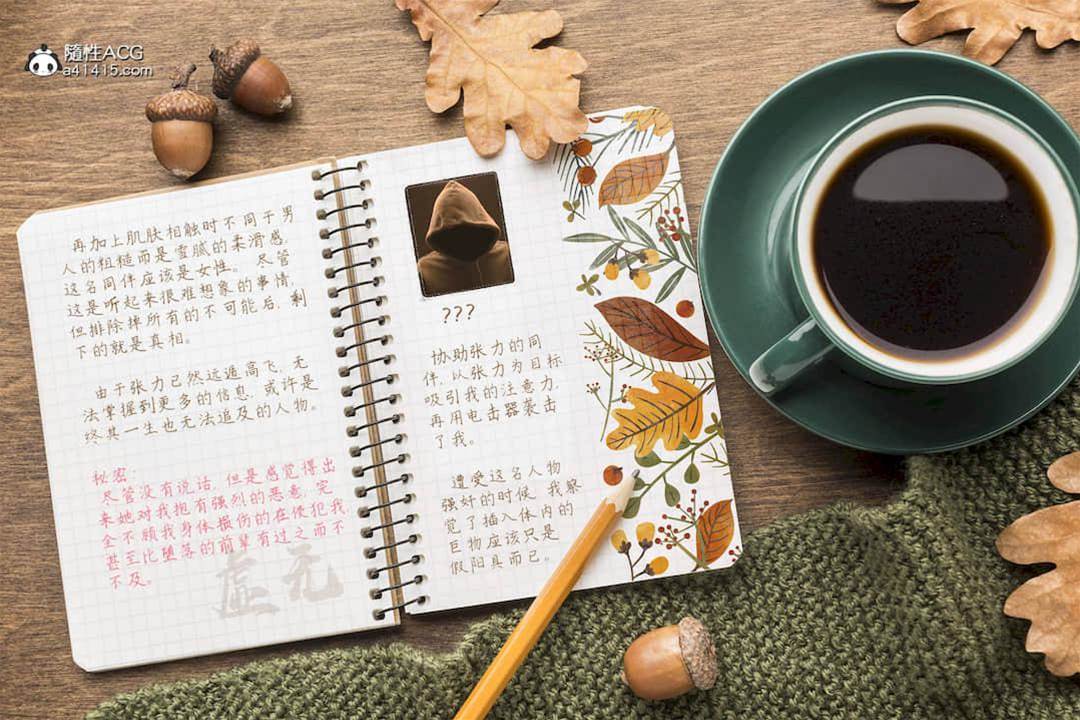 隨性ACG
a41415.com
???
协助张力的同
伴，以张力为目标
吸引我的注意力，
再用电击器袭击
了我。
遭受这名人物
强奸的时候，我察
觉了插入体内的
巨物应该只是
假阳具而已。
再加上肌肤相触时不同于男
人的粗糙而是雪腻的柔滑感，
这名同伴应该是女性。尽管
这是听起来很难想象的事情，
但排除掉所有的不可能后，剩
下的就是真相。
由于张力已然远遁高飞，无
法掌握到更多的信息，或许是
终其一生也无法追及的人物。
秘密：
尽管没有说话，但是感觉得出
来她对我抱有强烈的恶意，完
全不顾我身体损伤的在侵犯我，
甚至比堕落的前辈有过之而不
不及。
虚无